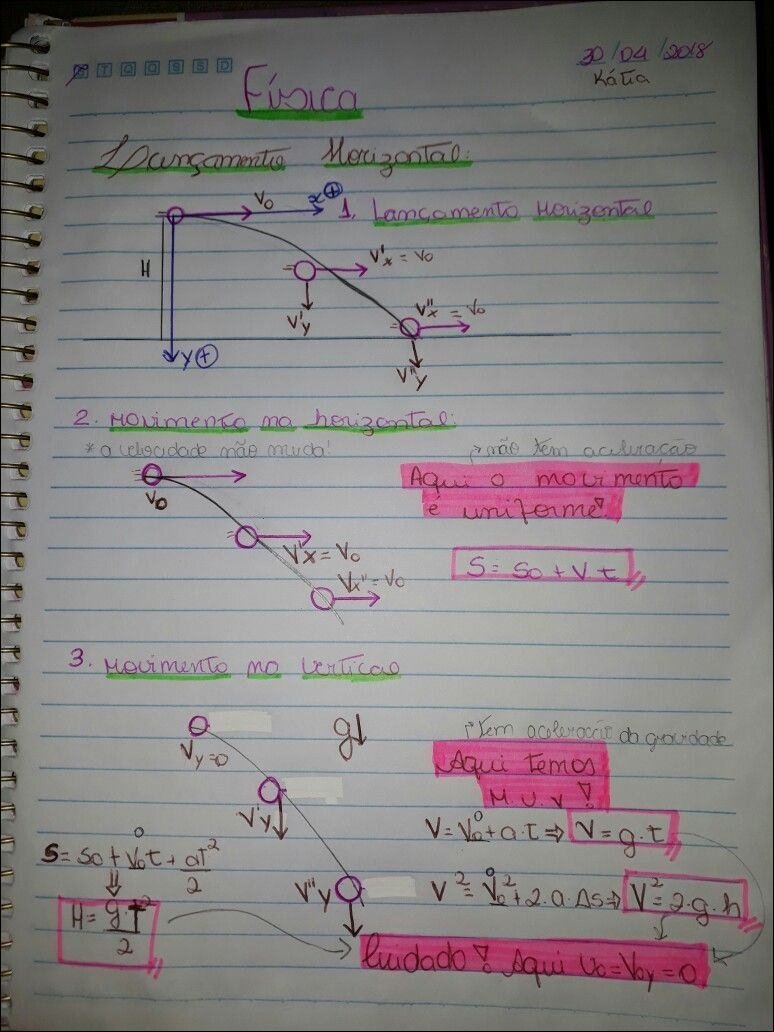 D T Q Q S S D
30/04/2018
Kátia
Física
1 Lançamento Horizontal:
V₀ x⊕
1. Lançamento Horizontal
H
V'x = V₀
V'y
V''x = V₀
V''y
y⊕
2. Movimento na horizontal:
* a velocidade não muda!
não tem aceleração
Aqui o movimento
é uniforme!
V₀
V'x = V₀
Vx'' = V₀
S = So + V.t
3. Movimento no vertical
Vy=0
g↓
tem aceleração da gravidade
Aqui temos
M.U.V!
V'y
V = V₀ + a.t ⇒ V = g.t
0
S = So + V₀t + at²/2
0
V''y
V² = V₀² + 2.a.Δs ⇒ V² = 2.g.h
0
H = g.T²/2
Cuidado! Aqui V₀ = V₀y = 0